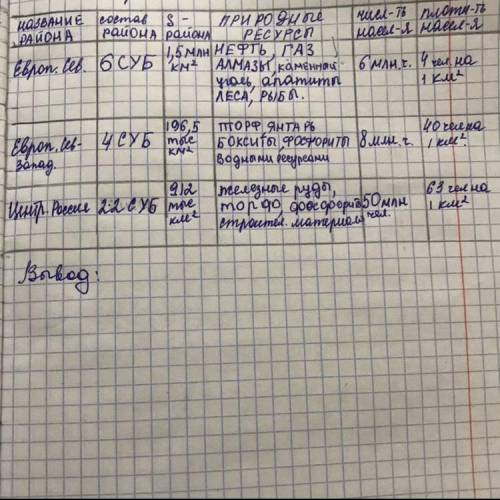 НАЗВАНИЕ РАЙОНА состав РАЙОНА S - РАЙОНА ПРИРОДНЫЕ РЕСУРСЫ числ-ть насел-я плотн-ть насел-я
Европ. Сев. 6 СУБ 1,5 млн км² НЕФТЬ, ГАЗ, АЛМАЗЫ, каменный уголь, апатиты ЛЕСА, РЫБЫ. 6 млн. ч. 4 чел. на 1 км²
Европ. Сев-Запад. 4 СУБ 196,5 тыс км² ТОРФ ЯНТАРЬ БОКСИТЫ ФОСФОРИТЫ водными ресурсами 8 млн. ч. 40 чел на 1 км²
Центр. Россия 22 СУБ 912 тыс км² железные руды, торф, фосфориты строител. материалы 50 млн чел. 63 чел на 1 км²
Вывод: